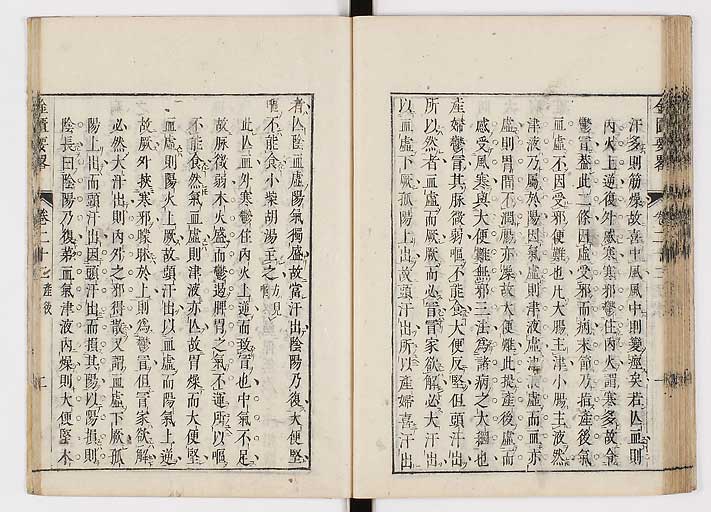 金匱要畧
汗多則筋燥故喜中風風中則變痙矣若亾血則
內火上逆復外感寒寒邪鬱住內火謂寒多故令
鬱冒蓋此二條因虛受邪而病末節乃推產後氣
血虛不因受邪便難也凡大腸主津小腸主液然
津液乃屬於陽因氣虛則津液虛津液虛而血亦
虛則胃間不潤腸亦燥故大便難此提產後虛而
感受風寒與大便難無邪三法爲諸病之大綱也
產婦鬱冒其脉微弱嘔不能食大便反堅但頭汗出
所以然者血虛而厥厥而必冒冒家欲解必大汗出
以血虛下厥孤陽上出故頭汗出所以產婦喜汗出
者亾陰血虛陽氣獨盛故當汗出陰陽乃復大便堅
嘔不能食小柴胡湯主之方見
此亾血外寒鬱住內火上逆而致冒也中氣不足
故脉微弱木火盛而鬱遏脾胃之氣不運所以嘔
不能食然氣血虛則津液亦亾故胃燥而大便堅
血虛則陽火上厥故頭汗出以血虛而陽氣上逆
故厥外挾寒邪朦朧於上則爲鬱冒但冒家欲解
必然大汗出則內外之邪得散又謂血虛下厥孤
陽上出而頭汗出因頭汗出而損其陽以陽損則
陰長曰陰陽乃復第血氣津液內燥則大便堅木
金匱要畧 卷二十 產後